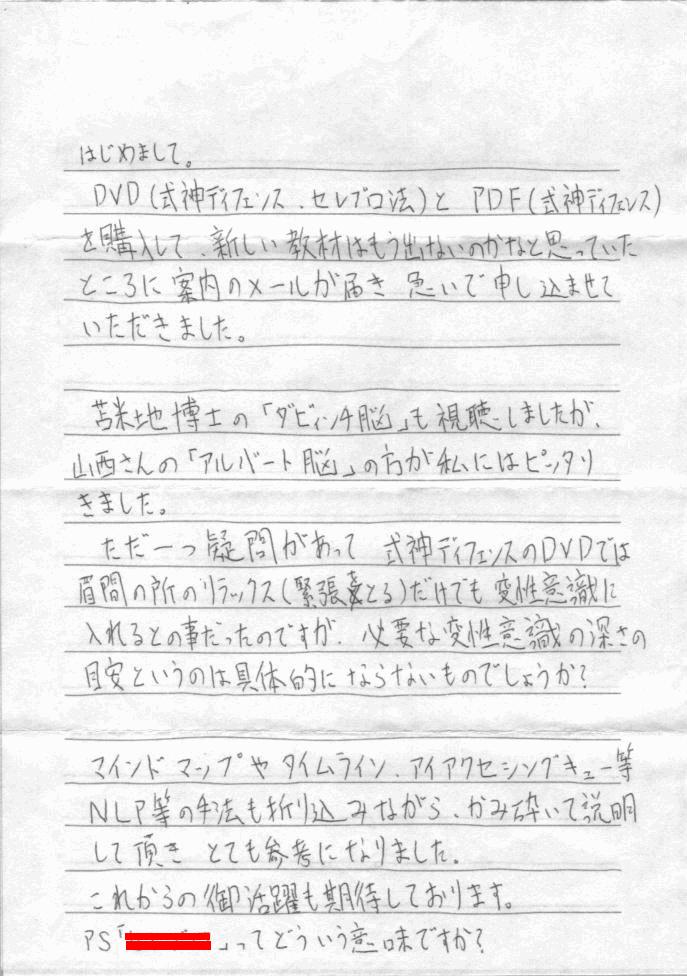 はじめまして。
DVD(式神ディフェンス、セレブロ法)と PDF(式神ディフェンス)
を購入して、新しい教材はもう出ないのかなと思っていた
ところに案内のメールが届き 急いで申し込ませて
いただきました。
苫米地博士の「ダビィンチ脳」も視聴しましたが、
山西さんの「アルバート脳」の方が私にはピッタリ
きました。
ただ一つ疑問があって 式神ディフェンスのDVDでは
眉間の所のリラックス(緊張をとる)だけでも変性意識に
入れるとの事だったのですが、必要な変性意識の深さの
目安というのは具体的にならないものでしょうか?
マインドマップやタイムライン、アイアクセシングキュー等
NLP等の手法も折り込みながら、かみ砕いて説明
して頂き とても参考になりました。
これからの御活躍も期待しております。
PS「」ってどういう意味ですか?